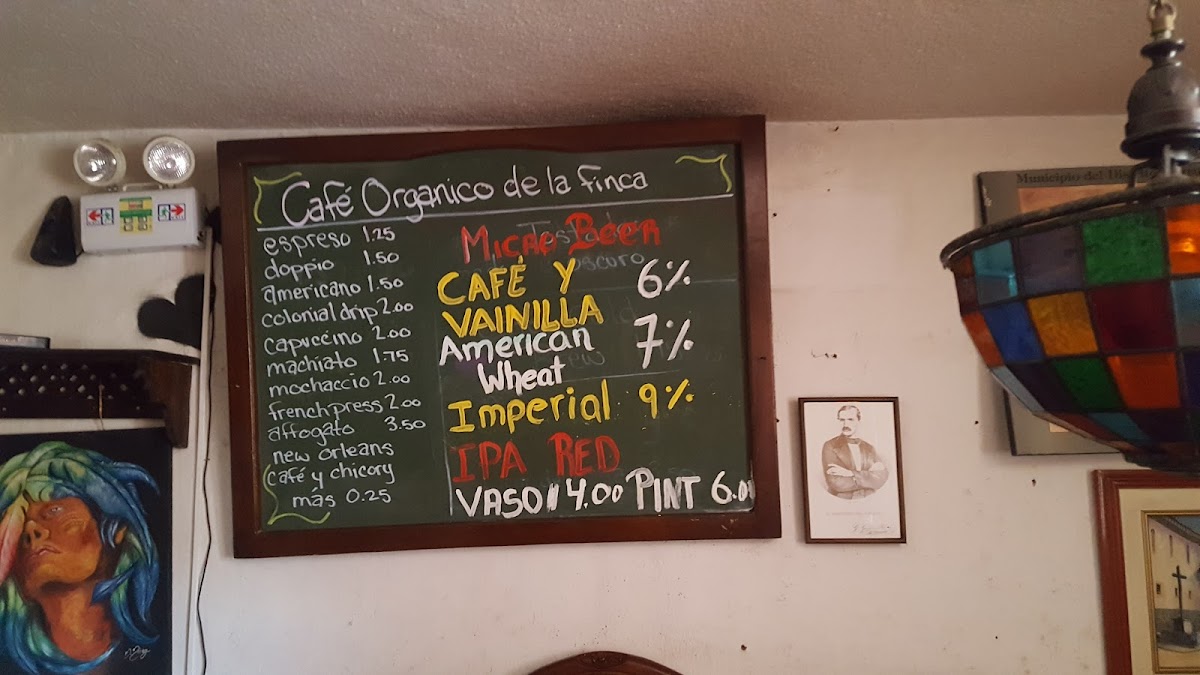 Café Organico de la finca
espreso 1.25
doppio 1.50
americano 1.50
colonial drip 2.00
capuccino 2.00
machiato 1.75
mochaccio 2.00
french press 2.00
affogato 3.50
new orleans
café y chicory
mas 0.25
Micro Beer
CAFÉ Y
VAINILLA 6%
American
Wheat 7%
Imperial 9%
IPA RED
VASO 4.00 PINT 6.0
oscuro
Municipio del